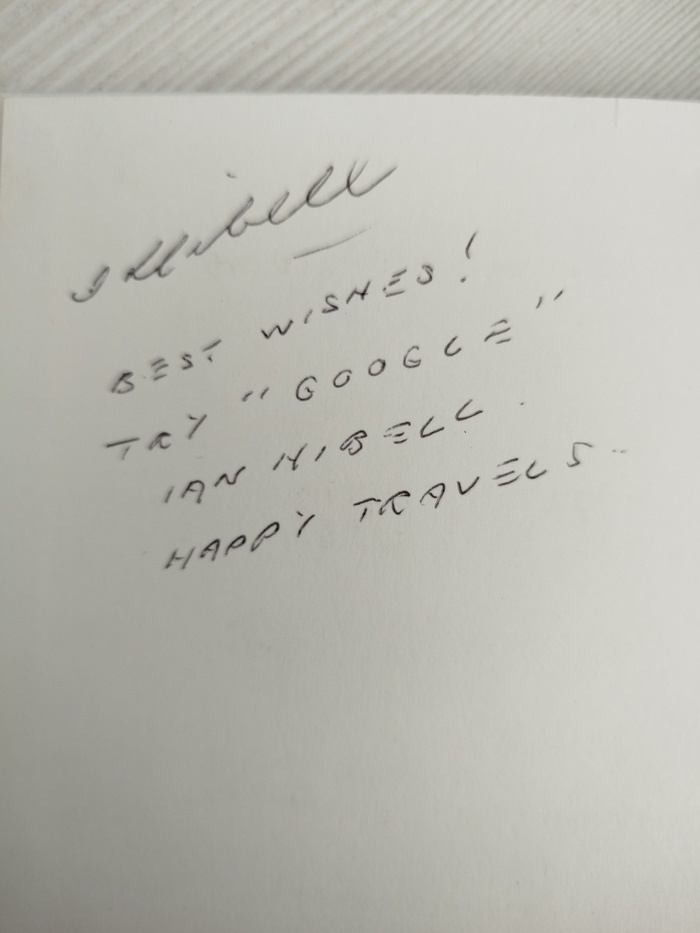 I Hibell
BEST WISHES!
TRY "GOOGLE"
IAN HIBELL.
HAPPY TRAVELS..